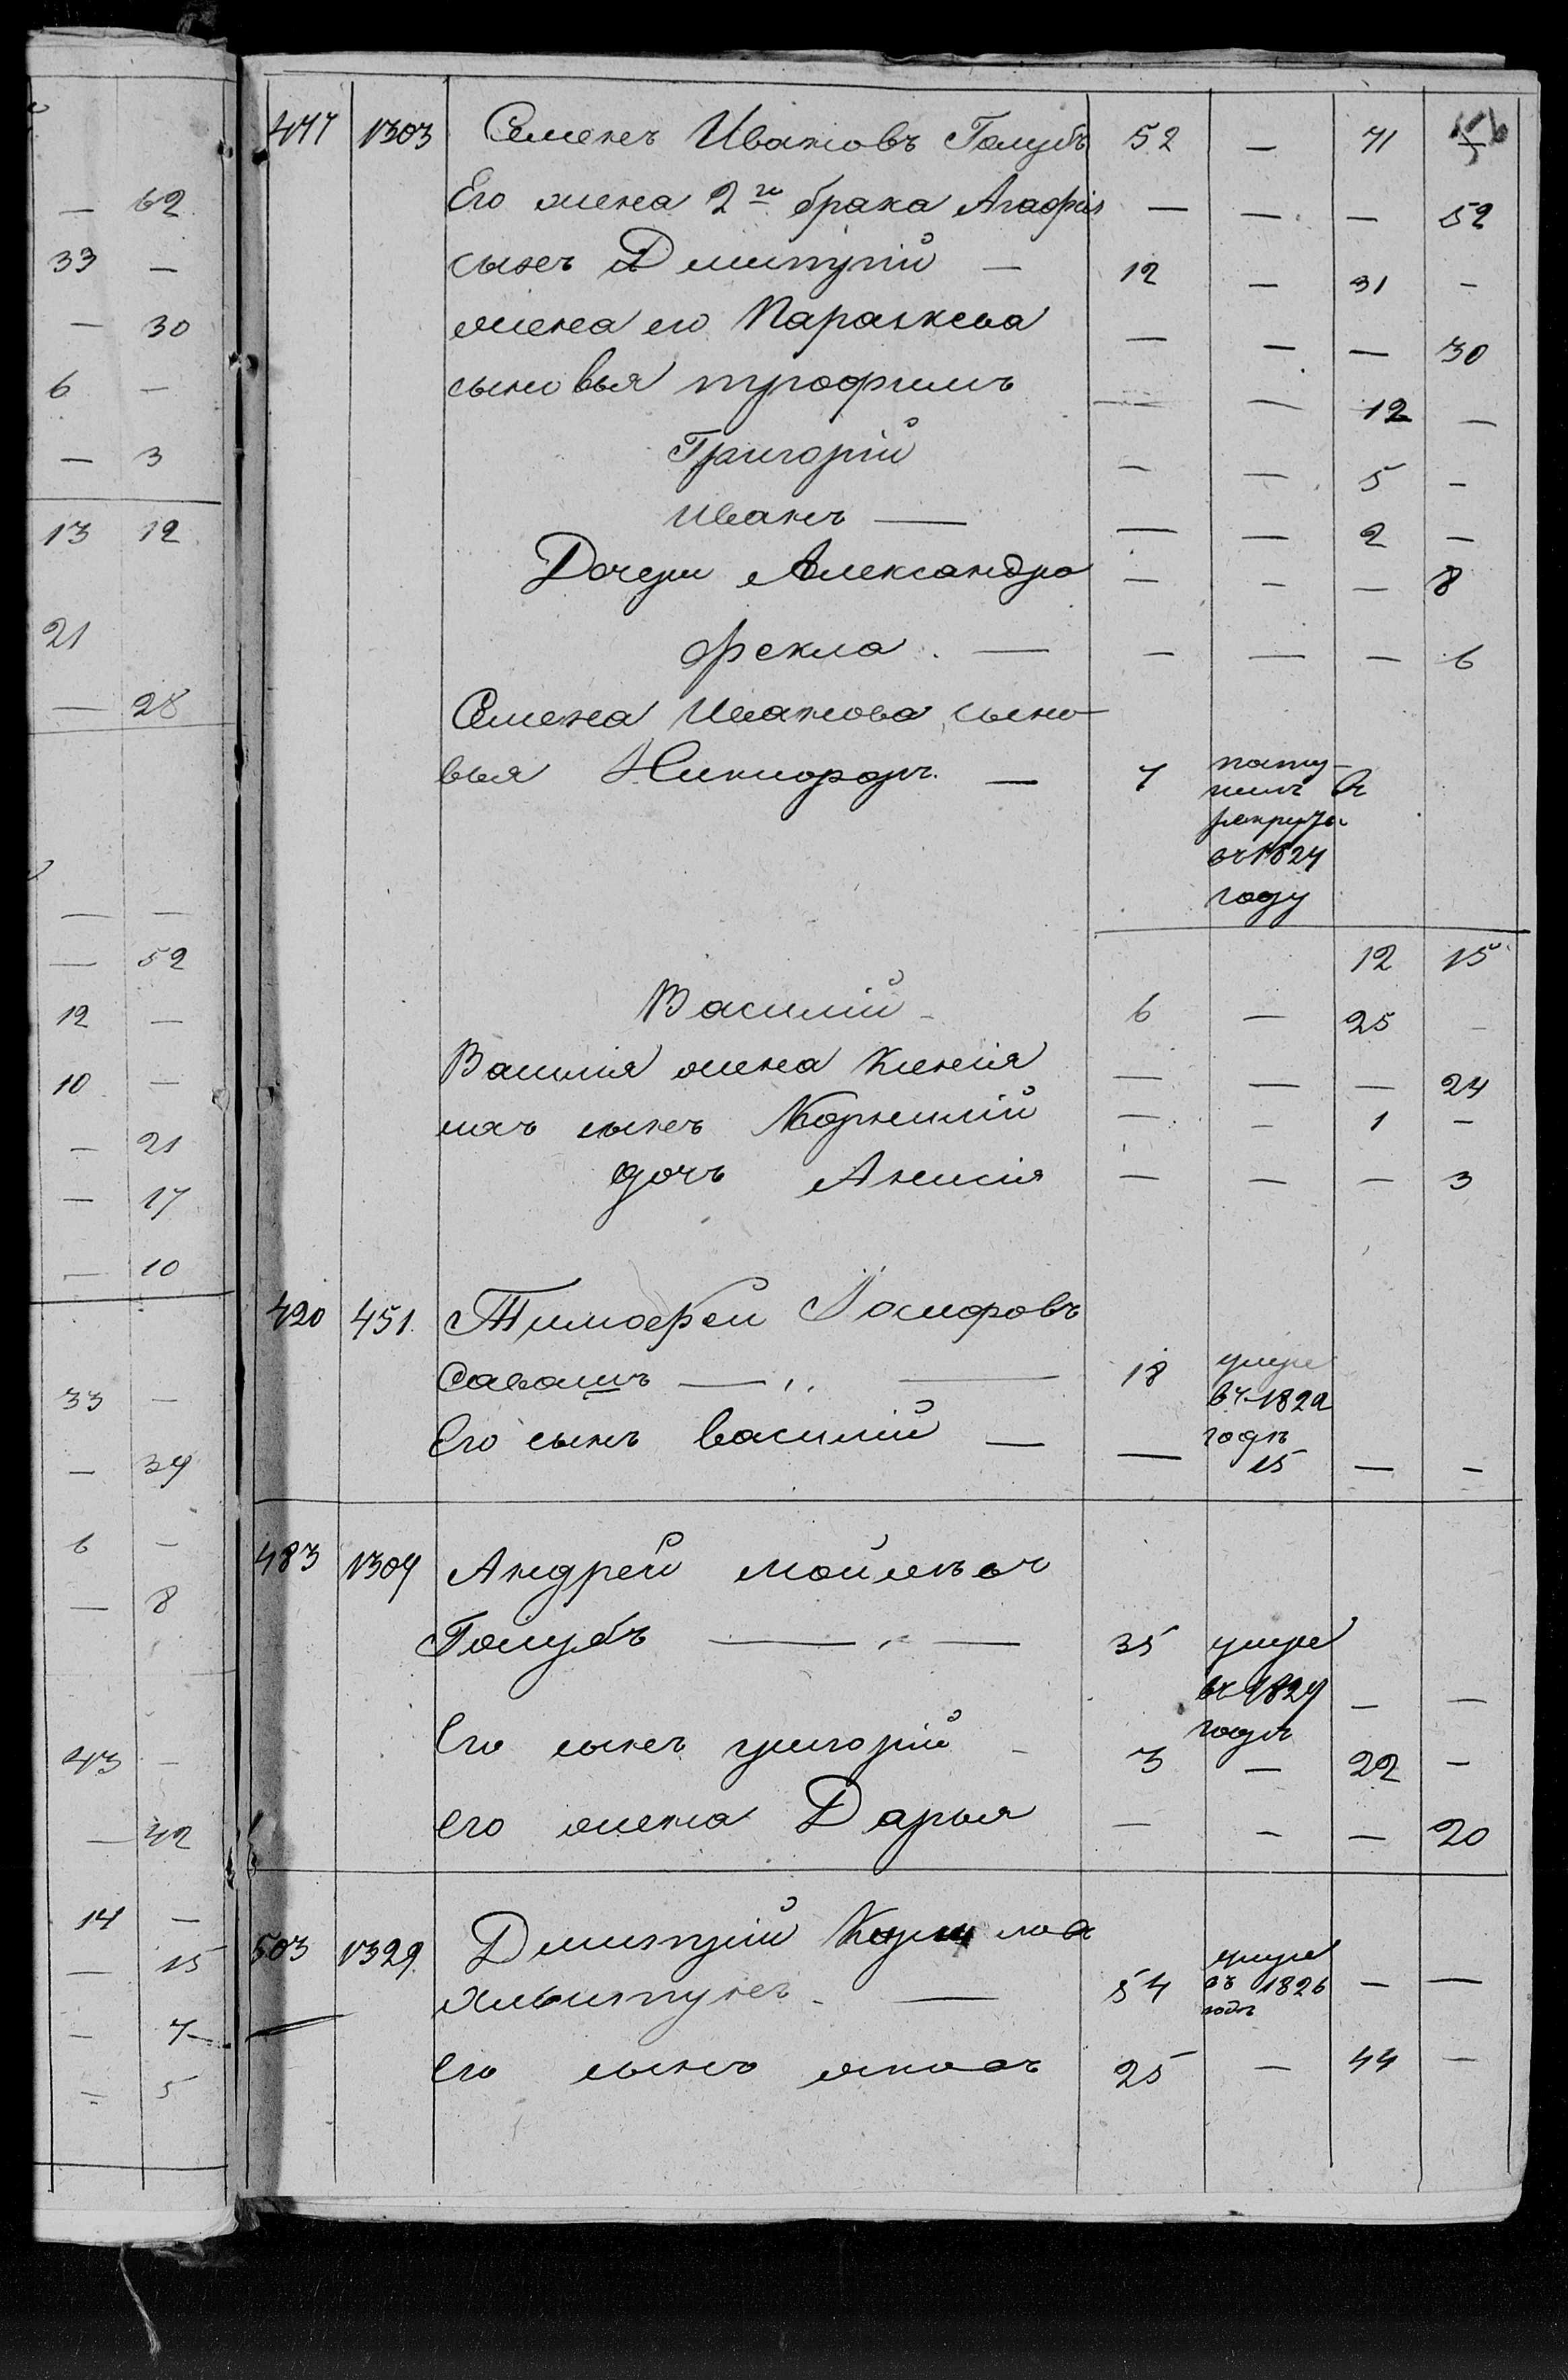 62
33 —
— 30
6 —
— 3
13 12
21
— 28
— —
— 52
12 —
10 —
— 21
— 17
— 10
33 —
— 34
6 —
— 8
43 —
— 42
14 —
— 15
— 7
— 5
477 1303 Семенъ Ивановъ Голубъ 52 — 71
Его жена 2го брака Агафія — — — 52
сынъ Дмитрій — 12 — 31 —
жена его Параскева — — — 30
сыновья трофимъ — — 12 —
Григорій — — 5 —
Иванъ — — — 2 —
Дочери Александра — — — 8
фекла — — — — 6
Семена Иванова сыно
вья Никифоръ — 7 посту-
пилъ въ
рекруты
въ 1824
году
12 15
Василій 6 — 25 —
Василія жена Ксенія — — — 24
ихъ сынъ Корнилій — — 1 —
дочь Анисія — — — 3
420 451 Тимофей Іосифовъ
Савашъ — „ — 18 умре
въ 1822
годѣ
Его сынъ василій — — 15 — —
483 1304 Андрей мойсѣевъ
Голубъ — 35 умре
въ 1824 — —
годѣ
Его сынъ григорій 3 — 22 —
его жена Дарья — — — 20
503 1329 Дмитрій
54 умре
въ 1826 — —
годѣ
Его сынъ яковъ 25 — 44 —